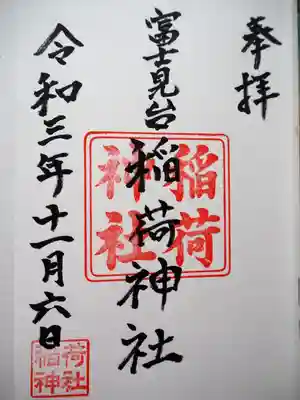 奉拝
富士見台
稲荷神社
令和三年十一月六日
稲荷
神社
稲荷
神社